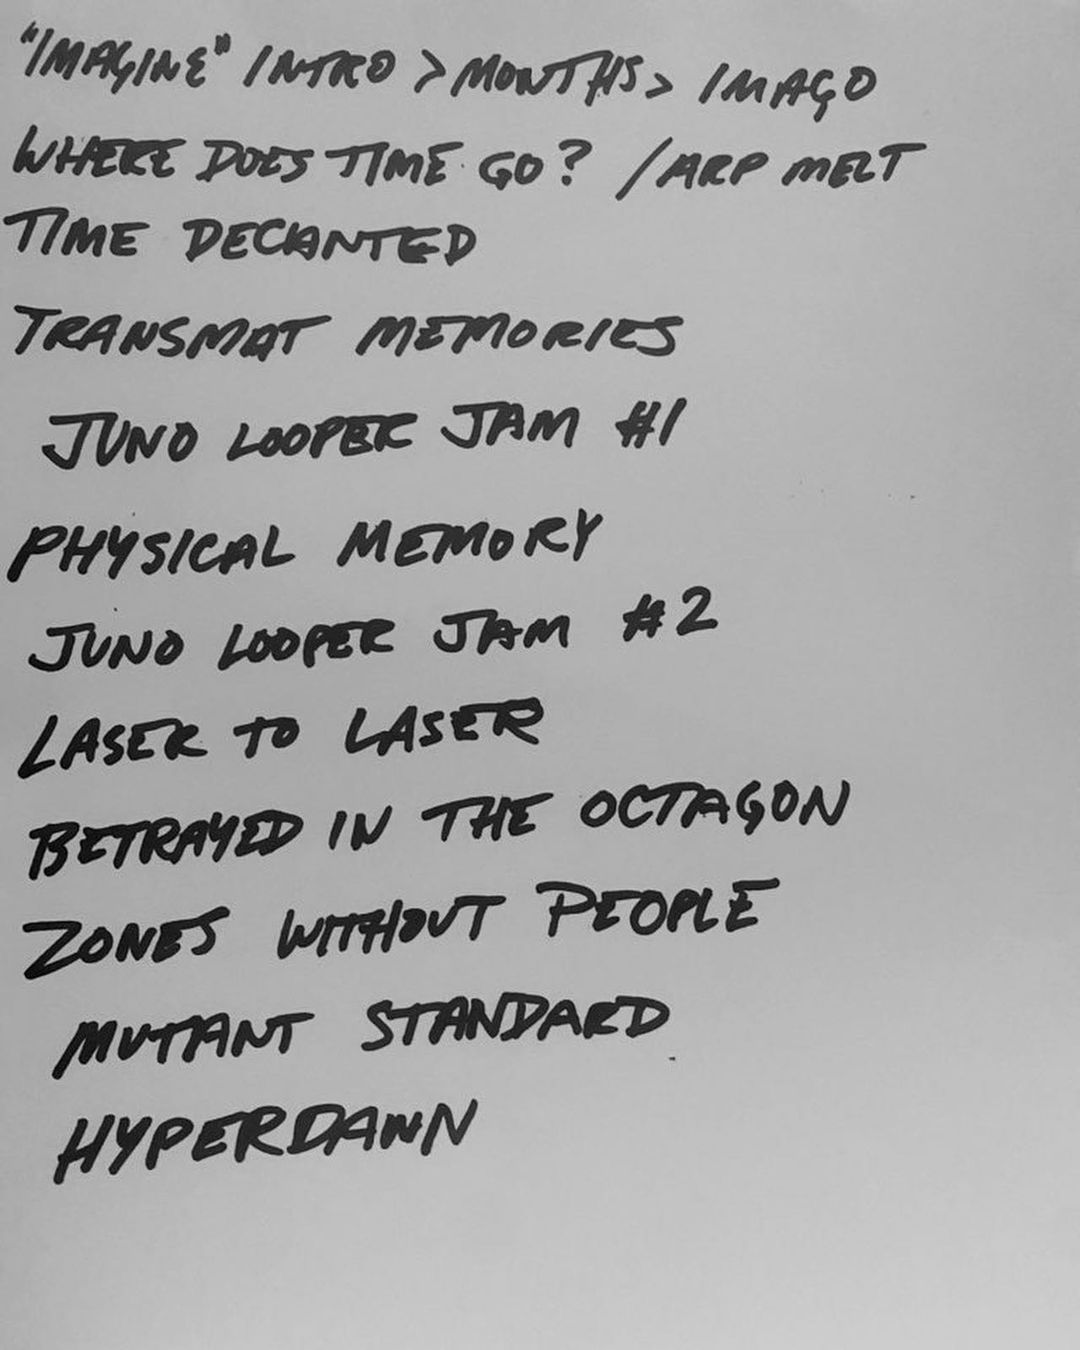 "IMAGINE" INTRO > MONTHS > IMAGO
WHERE DOES TIME GO? / ARP MELT
TIME DECANTED
TRANSMAT MEMORIES
JUNO LOOPER JAM #1
PHYSICAL MEMORY
JUNO LOOPER JAM #2
LASER TO LASER
BETRAYED IN THE OCTAGON
ZONES WITHOUT PEOPLE
MUTANT STANDARD
HYPERDAWN